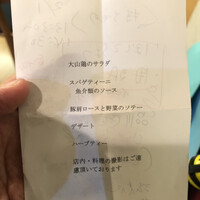 大山鶏のサラダ
スパゲティーニ
魚介類のソース
豚肩ロースと野菜のソテー
デザート
ハーブティー
店内・料理の撮影はご遠
慮頂いております